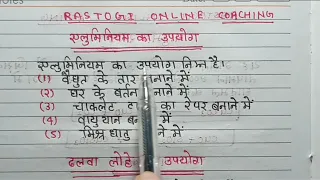 RASTOGI ONLINE COACHING
एलुमिनियम का उपयोग
एलुमिनियम का उपयोग निम्न है।
(1) वैधुत के तार बनाने में
(2) घर के बर्तन बनाने में
(3) चाकलेट का रैपर बनाने में
(4) वायुयान बनाने में
(5) मिश्र धातु में
ढलवा लोहे उपयोग